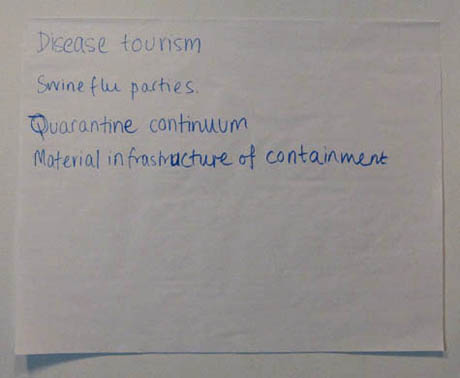 Disease tourism
Swine flu parties.
Quarantine continuum
Material infrastructure of containment